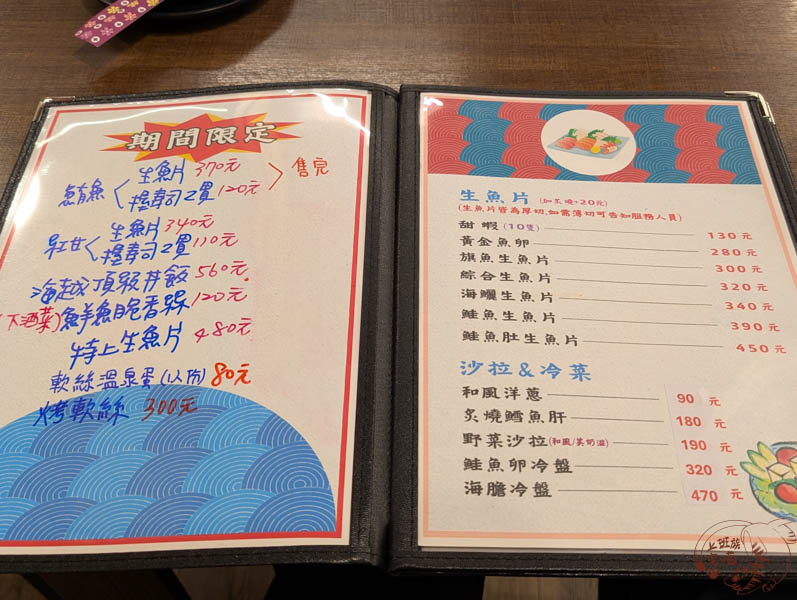 期間限定
生魚片 370元
魽魚 握壽司2貫 120元 售完
生魚片 340元
紅甘 握壽司2貫 110元
海越頂級丼飯 560元
(下酒菜) 鮮魚脆香 120元
特上生魚片 480元
軟絲溫泉蛋(1人份) 80元
烤軟絲 300元
生魚片 (加炙燒+20元)
(生魚片皆為厚切,如需薄切可告知服務人員)
甜蝦(10隻) 130元
黃金魚卵 280元
旗魚生魚片 300元
綜合生魚片 320元
海鱺生魚片 340元
鮭魚生魚片 390元
鮭魚肚生魚片 450元
沙拉&冷菜
和風洋蔥 90元
炙燒鱈魚肝 180元
野菜沙拉(和風/美奶滋) 190元
鮭魚卵冷盤 320元
海膽冷盤 470元
上班族